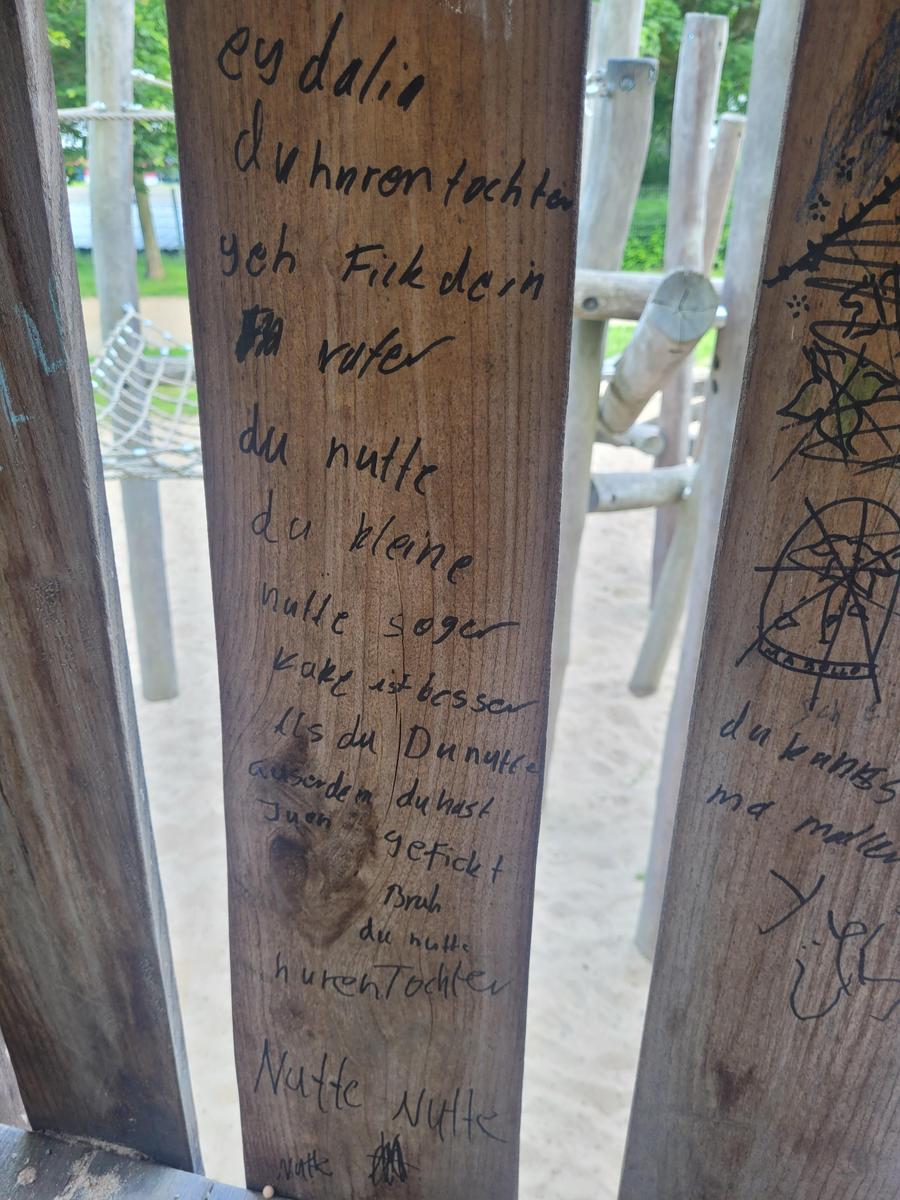 ey dalia
du hurentochter
geh Fick dein
vater
du nutte
du kleine
nutte sogar
kake ist besser
Als du Du nutte
auserdem du hast
Juan gefickt
Bruh
du nutte
hurenTochter
Nutte Nutte
Nutte
du kanns
ma mallen